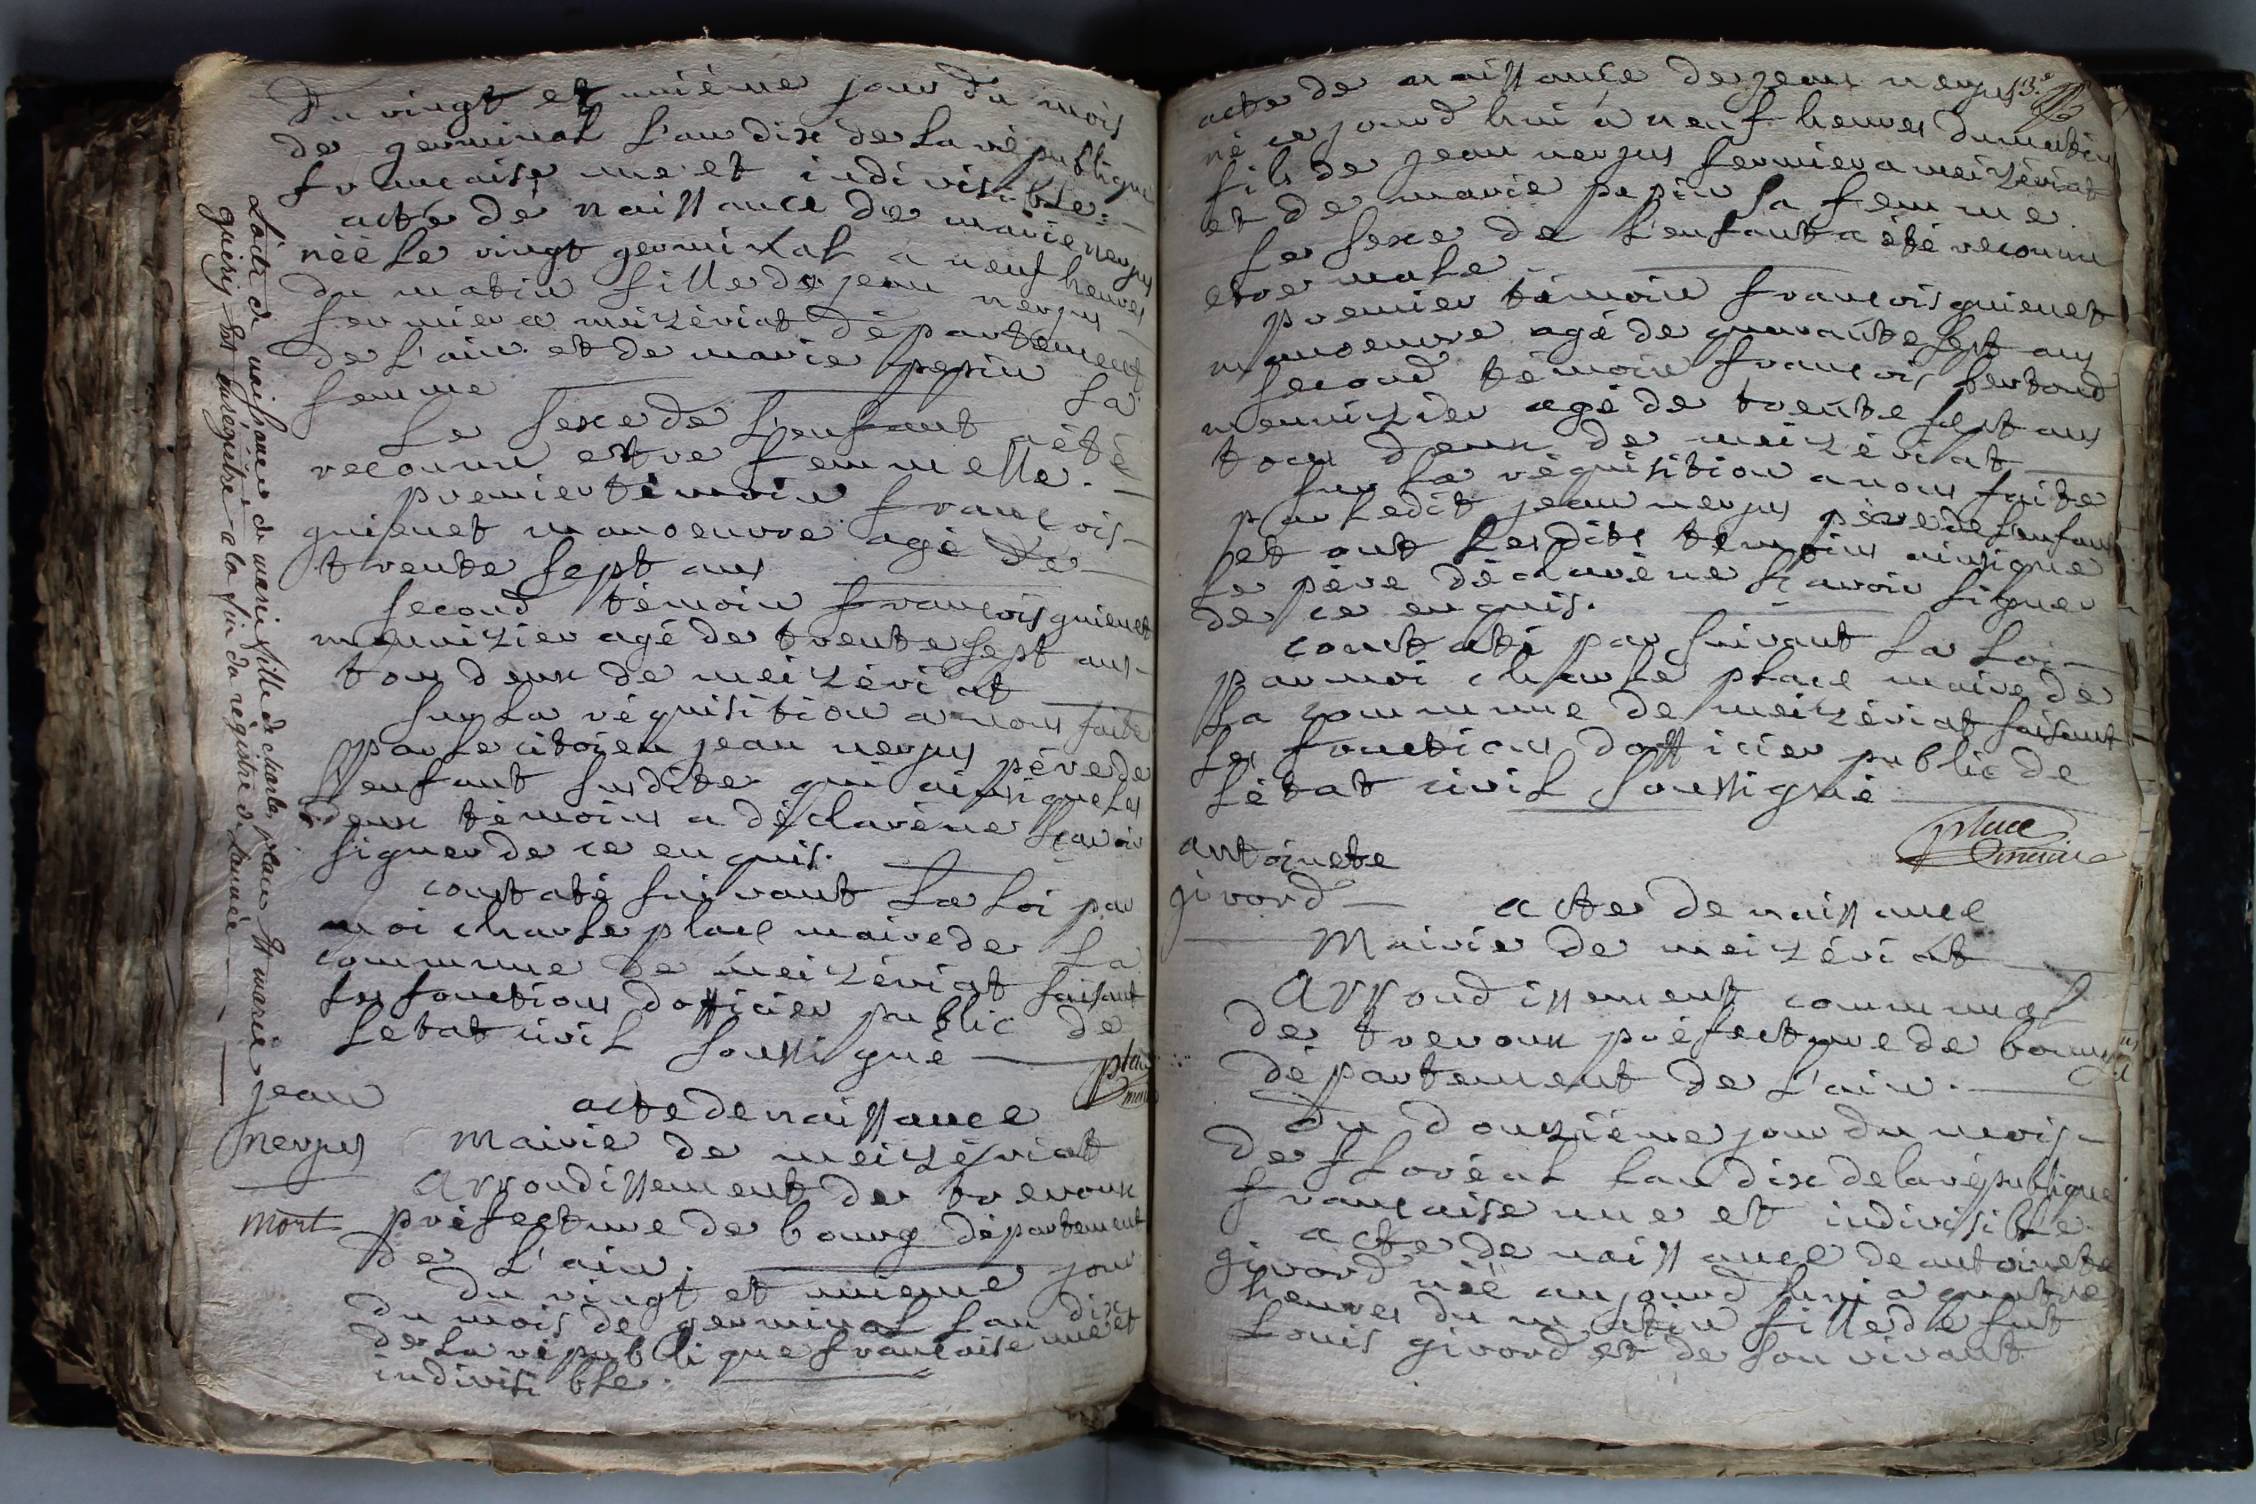 Du vingt et unième jour du mois
de germinal l'an dix de la république
francaise une et indivisible.
acte de naissance de marie nerjus
néë le vingt germinal a neuf heures
du matin fille de jean nerjus
fermier a meizériat département
de l'ain et de marie pepin sa
femme
Le sexe de l'enfant a été
reconnu estre femmelle.
premier témoin francois
guienet manoeuvre agé de
trente sept ans
second témoin francois guienet
menuizier agé de trente sept ans
tous deux de meizériat
sur la réquisition a nous faite
par le citoien jean nerjus père de
l'enfant susdite qui ainsi que les
deux témoins a déclaré ne sçavoir
signer de ce enquis.
constaté suivant la loi par
moi charle place maire de la
commune de meizériat faisant
les fonctions dofficier public de
letat civil soussigné
place
maire
L'acte de naissance de marie fille de charles place Et marie
guisiy Est enrégistré a la fin du régistre de l'année
jean
nerjus
mort
acte de naissance
Mairie de meizériat
Arrondissement de trevoux
préfecture de bourg département
de L'ain.
Du vingt et unieme jour
du mois de germinal l'an dix
de la république francaise une et
indivisible.
acte de naissance de jean nerjus
né ce jourd'hui a neuf heures du matin
fils de jean nerjus fermier a meizériat
et de marie pepin sa femme
Le sexe de l'enfant a été reconnu
etre male.
premier témoin francois guienet
manoeuvre agé de quarante sept ans
second témoin francois bertoud
menuizier agé de trente sept ans
tous deux de meizériat
sur la réquisition a nous faite
par ledit jean nerjus père de l'enfant
et ont lesdits temoins ainsi que
le père déclaré ne sçavoir signer
de ce enquis.
constaté par suivant la loi
par moi charle place maire de
la commune de meizériat faisant
les fonctions dofficier public de
létat civil soussigné
place
maire
antoinete
givord
acte de naissance
Mairie de meizériat
Arrondissement communal
de trevoux préfecture de bourg
département de L'ain.
Du douzième jour du mois
de floréal l'an dix de la république
francaise une et indivisible.
acte de naissance de antoinete
givord néë aujourd'hui a quatre
heures du matin fille de fut
Louis givord et de son vivant